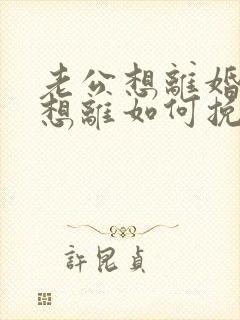 老公想離婚
想離如何挽
許昆貞